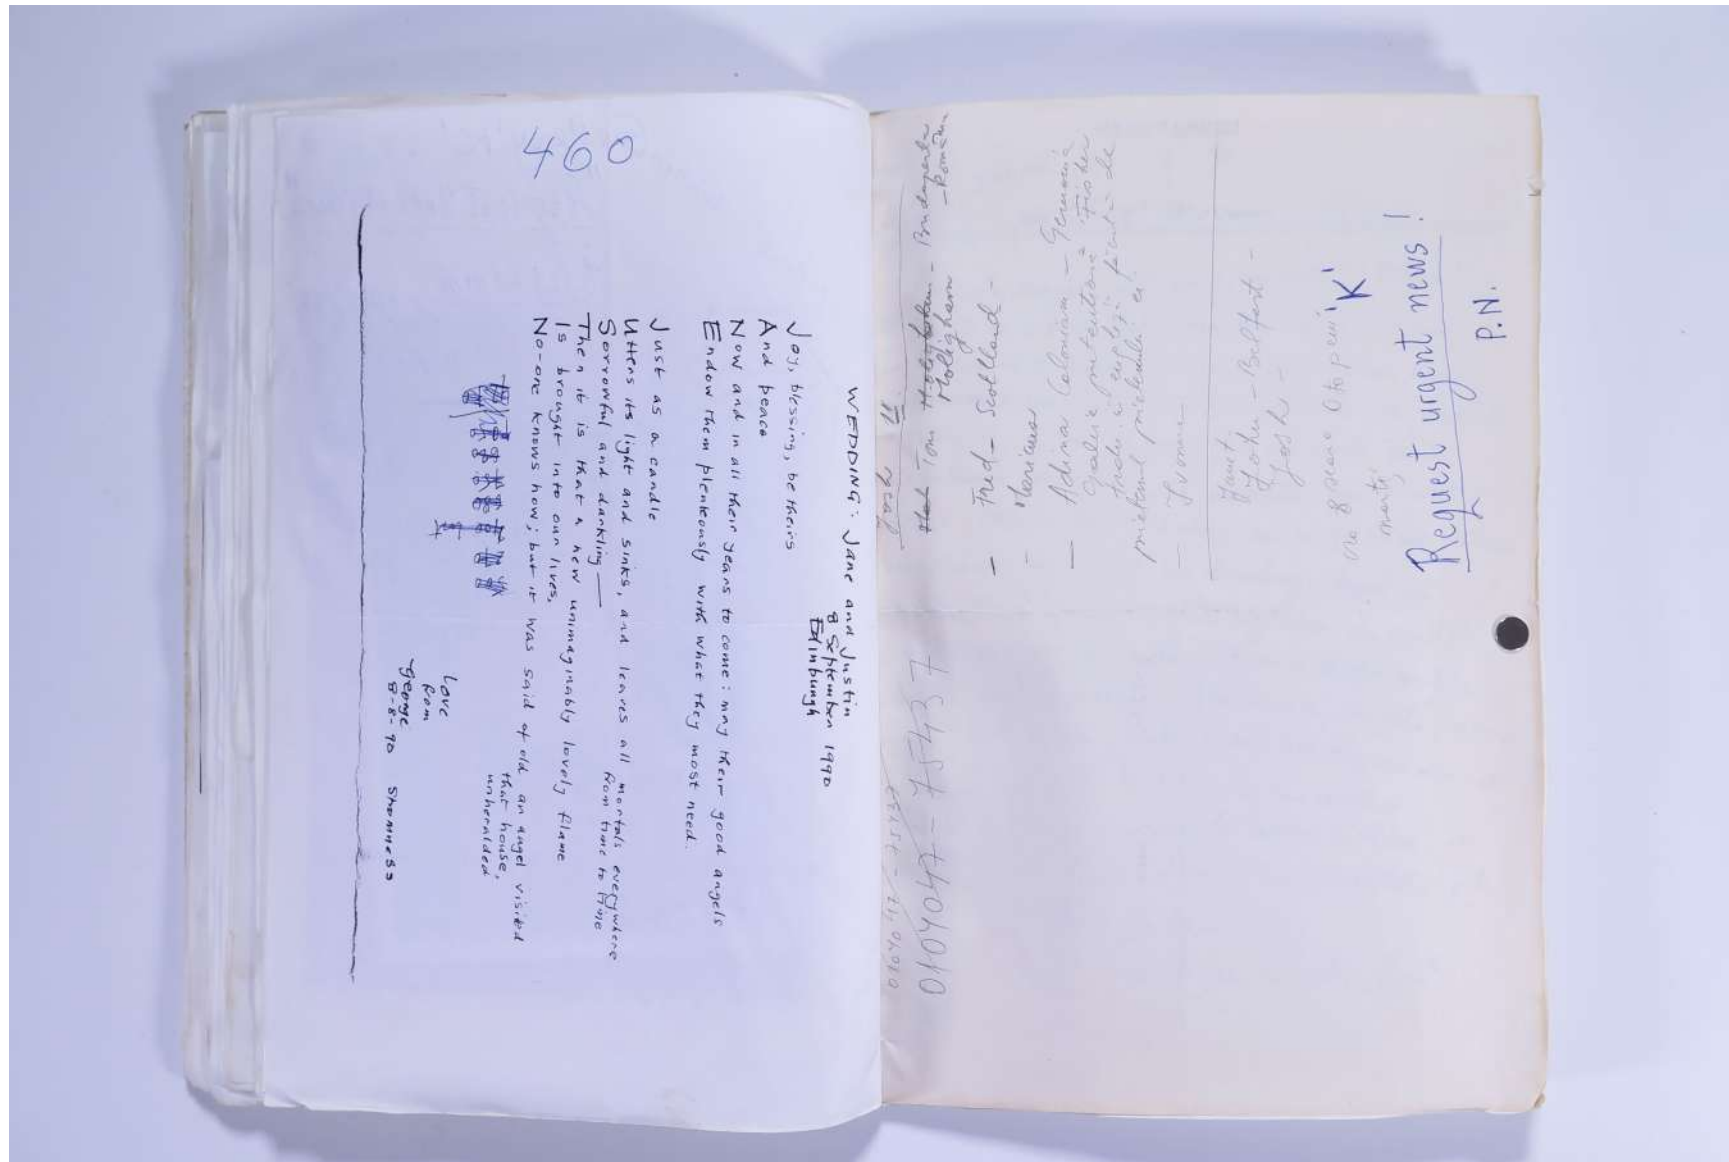 460
WEDDING: Jane and Justin
8 September 1990
Edinburgh
Joy, blessing, be theirs
And peace
Now and in all their years to come: may their good angels
Endow them plenteously with what they most need.
Just as a candle
Utters its light and sinks, and leaves all mortals everywhere
Sorrowful and darkling— from time to time
Then it is that a new unimaginably lovely flame
Is brought into our lives,
No-one knows how; but it was said of old an angel visited
that house,
unheralded
Love
from
George
8-8-90 Stromness
Tom Molligham - Budapesta
- România
— Fred - Scotland -
— Adina Colonian - Germania
— Yvonne
Janet
- Belfast -
Josh -
'K'
Request urgent news!
P.N.
0104047-75437
0104047-75437